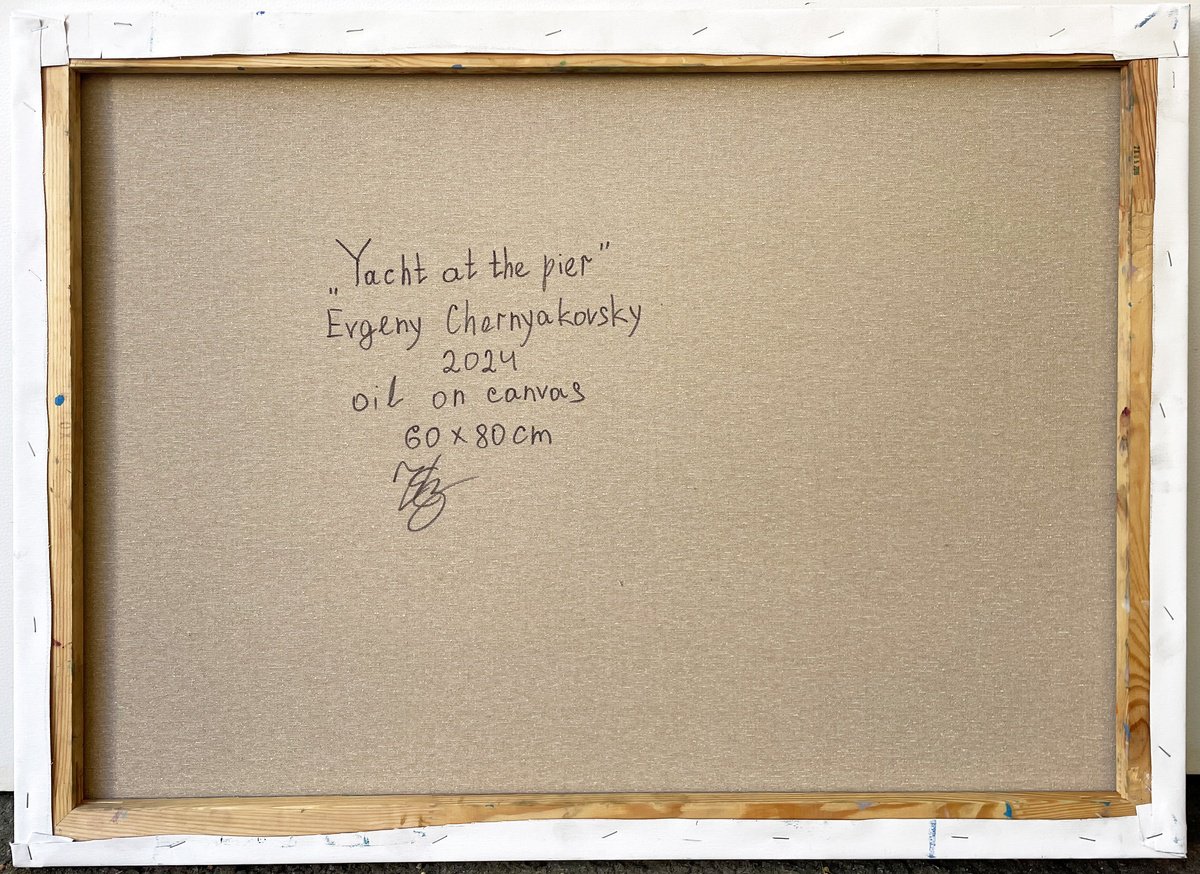 „Yacht at the pier"
Evgeny Chernyakovsky
2024
oil on canvas
60 x 80 cm